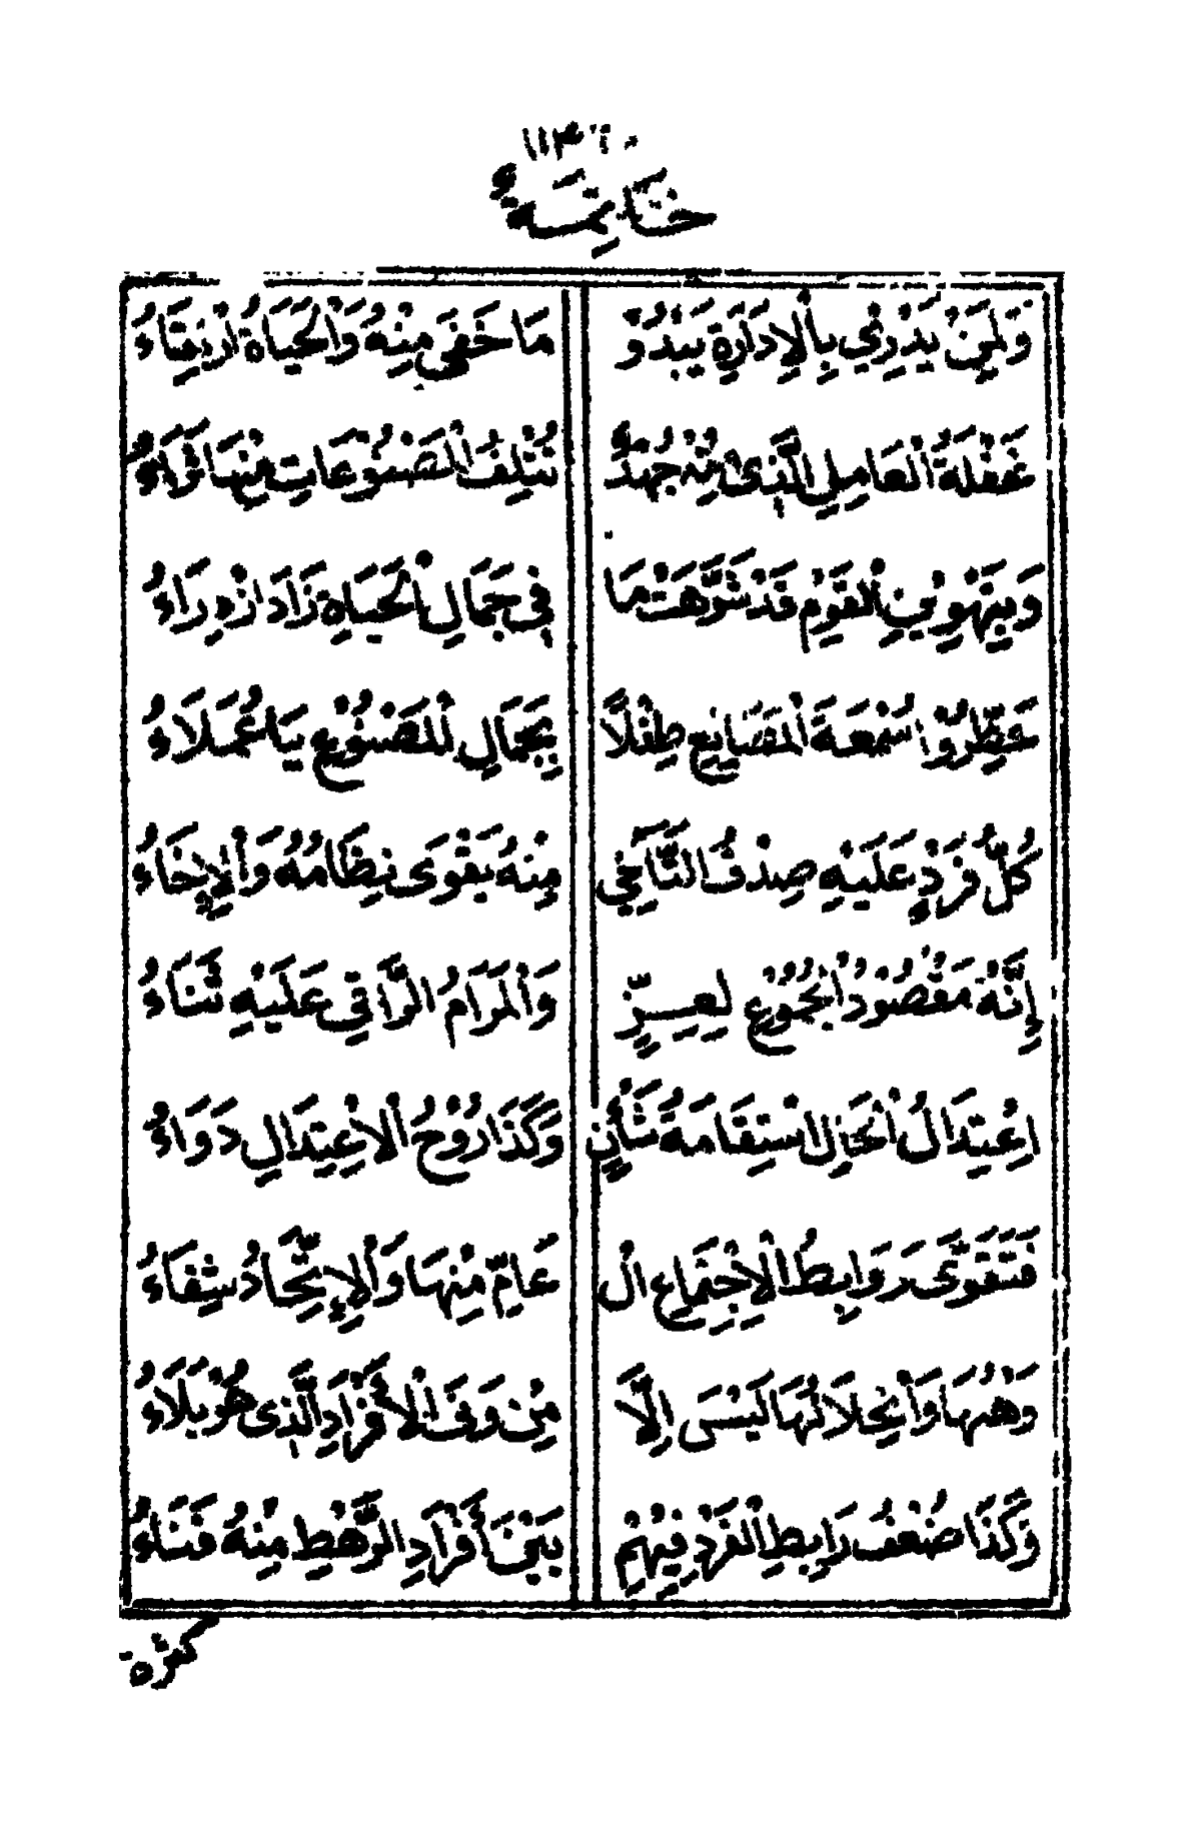 خَاتِمَةٌ
وَلِمَنْ يَدْرِنِي بِالْإِدَارَةِ يَبْدُوْ مَا خَفَى مِنْهُ وَالْحَيَاةُ ارْتِقَاءُ
غَفْلَةُ الْعَامِلِ الَّذِى مِنْهُ جُهْدٌ تُتْلِفُ الْمَصْنُوْعَاتِ مِنْهَا ثَرَاءٌ
وَبِتَهْوِيْنِ الْقَوْمِ قَدْ شَوَّهَتْ مَا فِى جَمَالِ الْحَيَاةِ زَادَ ازْدِرَاءُ
حَظِّرُوْا سُمْعَةَ الْمَصَانِعِ طِفْلًا بِجَمَالِ الْمَصْنُوْعِ يَا عُمَلَاءُ
كُلُّ فَرْدٍ عَلَيْهِ صِدْقُ التَّآخِي مِنْهُ يَقْوَى نِظَامُهُ وَالْإِخَاءُ
إِنَّهُ مَقْصُوْدُ الْجُمُوْعِ لِعِسِرٍّ وَالْمَرَامُ الرَّاقِي عَلَيْهِ ثَنَاءُ
اِعْتِدَالُ الْحَالِ اسْتِقَامَةُ شَأْنٍ وَكَذَا رُوْحُ الْاعْتِدَالِ دَوَاءُ
فَتَقَوَّى رَوَابِطُ الْاِجْتِمَاعِ الْ عَامِّ مِنْهَا وَالْإِتِّحَادُ شِفَاءُ
وَهْنُهَا وَانْحِلَالُهَا لَيْسَ إِلَّا مِنْ وَفَى الْأَفْرَادِ الَّذِى هُوْ بَلَاءُ
وَكَذَا ضُعْفُ رَابِطِ الْفَرْدِ فِيْهِمْ بَيْنَ أَفْرَادِ الرَّهْطِ مِنْهُ فَنَاءُ
كثرة